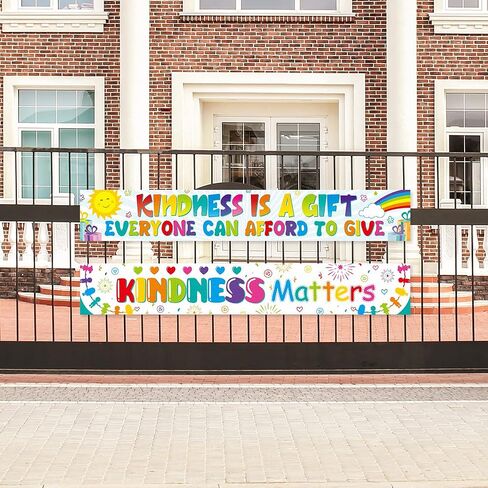 KINDNESS IS A GIFT
EVERYONE CAN AFFORD TO GIVE
KINDNESS Matters